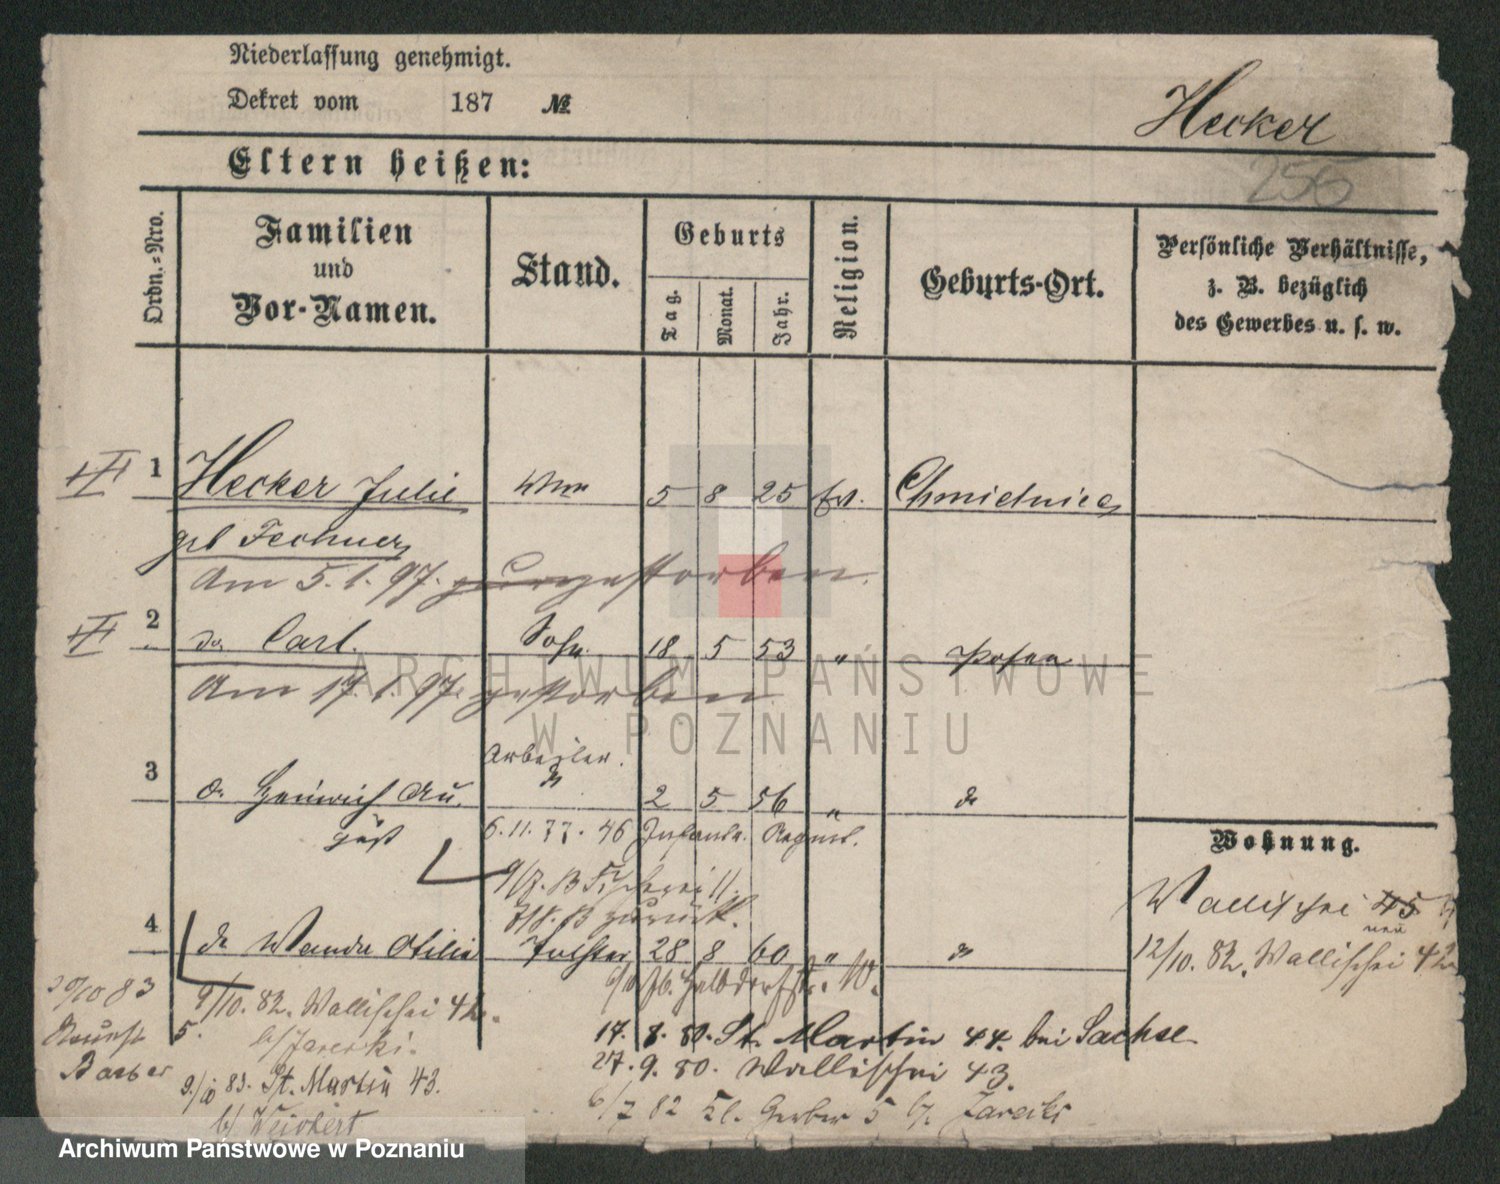 Niederlassung genehmigt.
Dekret vom 187 №
Hecker
Eltern heißen:
256
Ordn.=Nro.
Familien
und
Vor-Namen.
Stand.
Geburts
Tag.
Monat.
Jahr.
Religion.
Geburts-Ort.
Persönliche Verhältnisse,
z. B. bezüglich
des Gewerbes u. s. w.
1 Hecker Julie Wwe 5 8 25 ev.
geb Fechner
Am 5.1.97. gestorben.
2 do Carl. Sohn 18 5 53 " Posen
Am 17.1.97. gestorben
Arbeiter.
3 Heinrich Au. 2 5 56 " do
gust
6.11.77. 46 Infantr. Regmt.
Wohnung.
9/7. B Fischerei 11.
7/8. B zurück.
Wallischei 45
neu
4 do Wanda Otilie Tochter 28 8 60 " do
12/10. 82. Wallischei 42
Halbdorfstr.
9/10. 82. Wallischei 42.
5.
17. 8. 80. St. Martin 44. bei Sachse
27. 9. 80. Wallischei 43.
9./10 83. St. Martin 43.
b/ Weichert
6/7 82 Kl. Gerber 5
ARCHIWUM PAŃSTWOWE
W POZNANIU
Archiwum Państwowe w Poznaniu